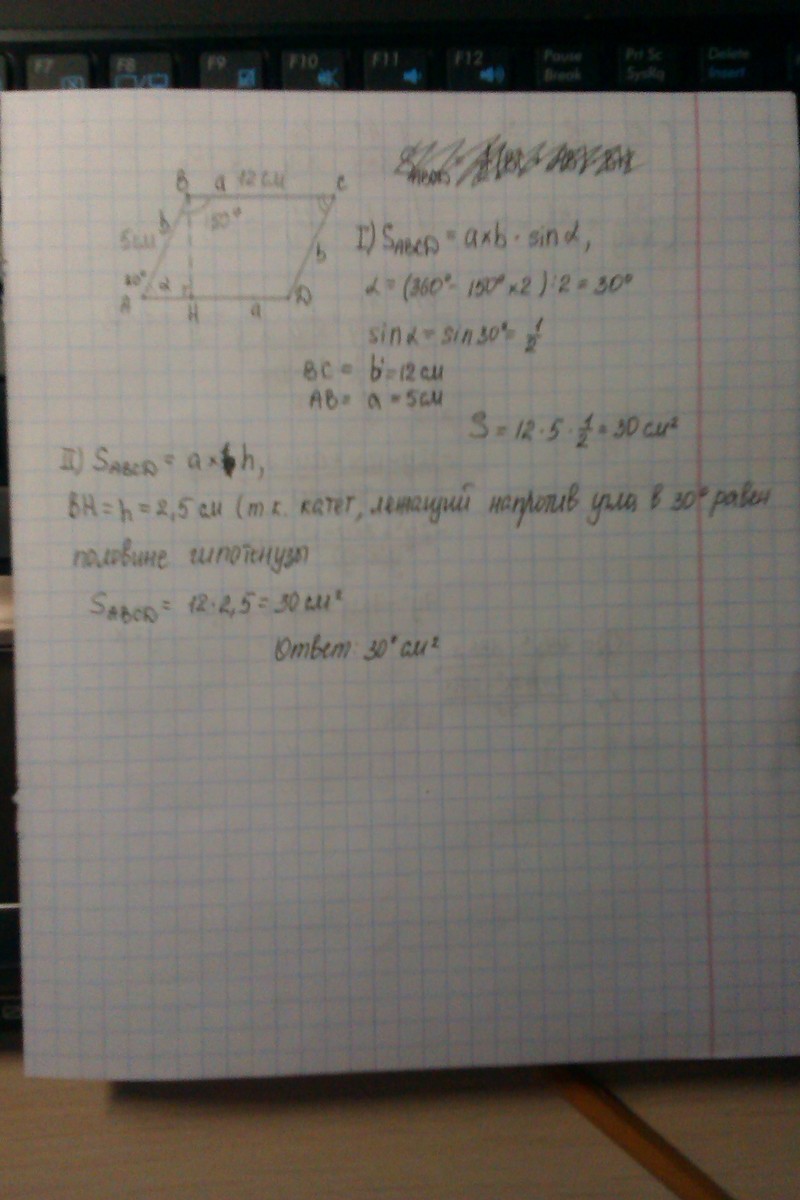 F7 F8 F9 F10 F11 F12 Pause Break Prt Sc SysRq Delete Insert
B a 12 см C
150°
5см b
b
30° α
A H a D
I) S ABCD = a×b · sinα,
α = (360° - 150°×2):2 = 30°
sinα = sin30° = 1/2
BC = b = 12 см
AB = a = 5см
S = 12 · 5 · 1/2 = 30 см²
II) S ABCD = a× h,
BH = h = 2,5 см (т к. катет, лежащий напротив угла в 30° равен
половине гипотенузы
S ABCD = 12·2,5 = 30 см²
Ответ: 30° см²